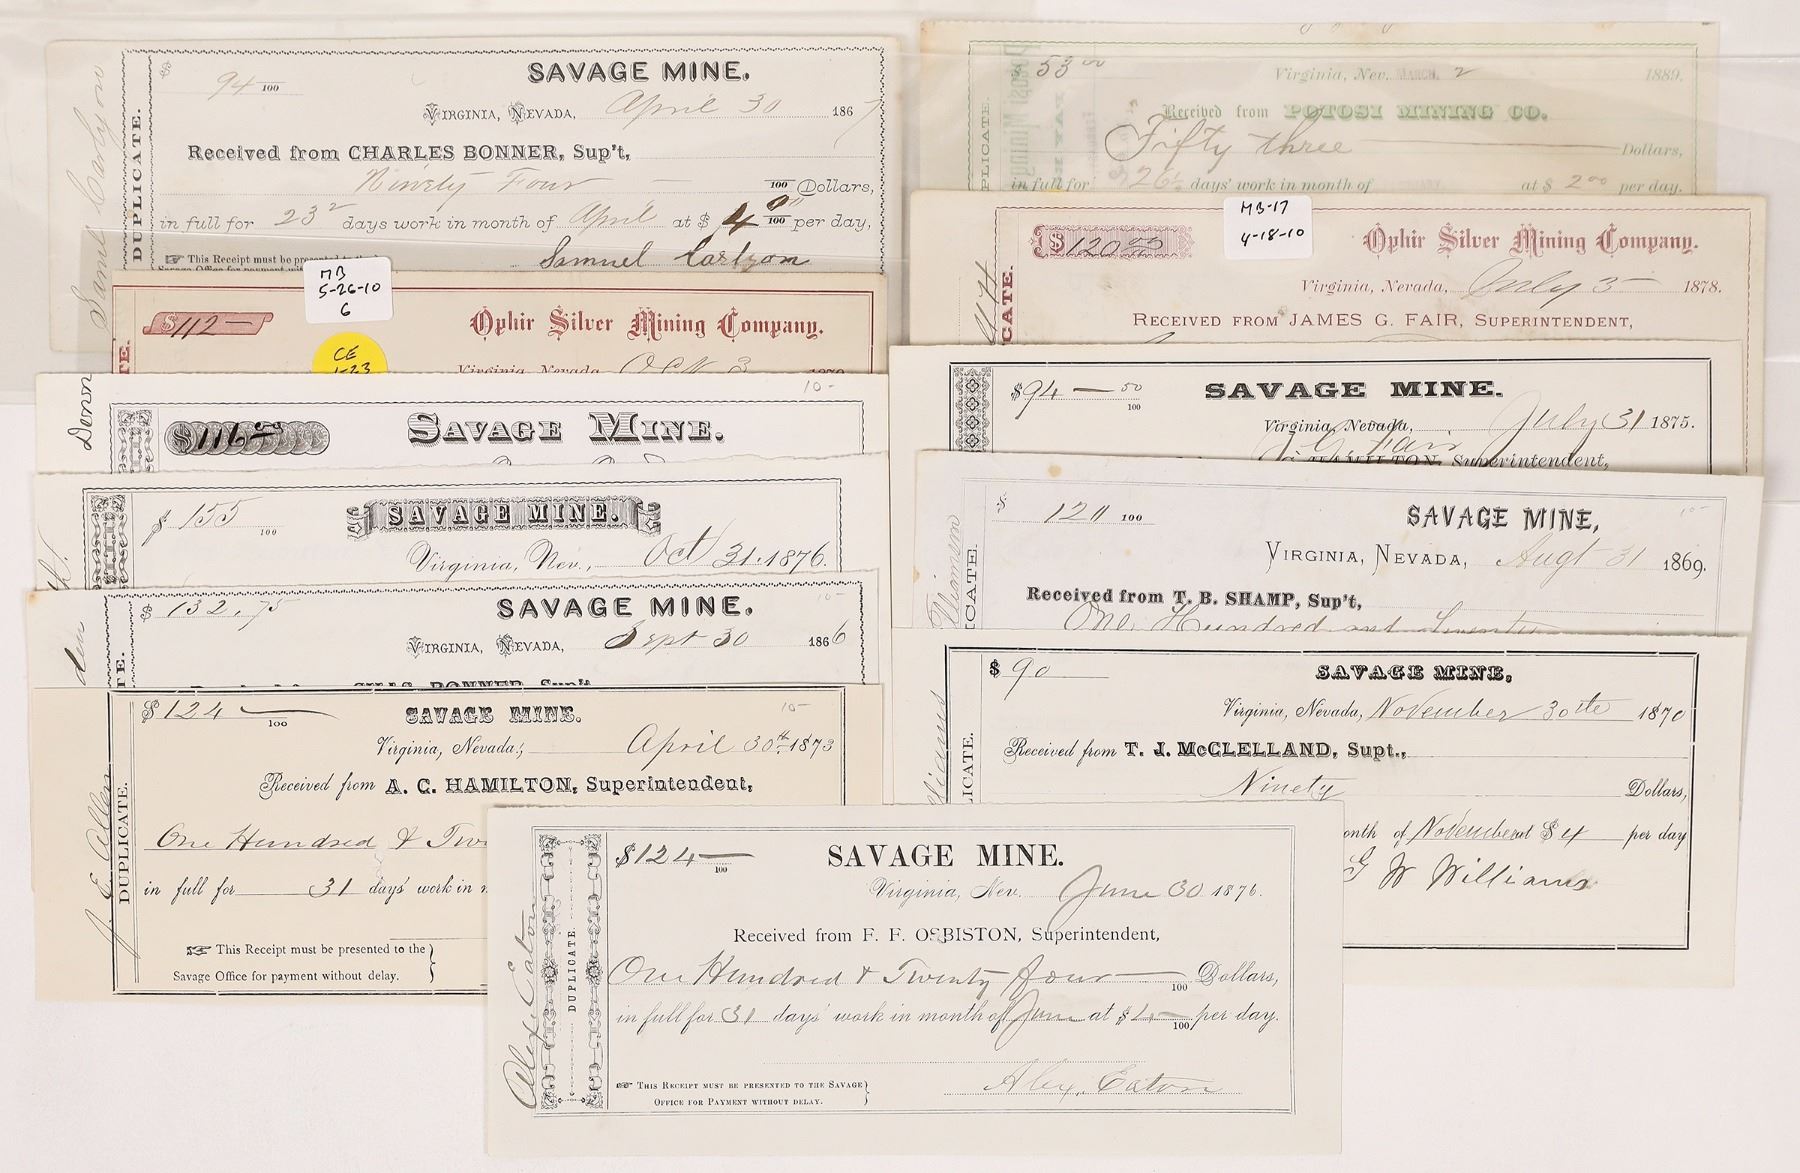 Saml Carlyon
DUPLICATE.
$ 94 100
SAVAGE MINE.
VIRGINIA, NEVADA, April 30 1867
Received from CHARLES BONNER, Sup't,
Ninety Four — 100 Dollars,
in full for 23 2 days work in month of April at $ 4 00 100 per day,
This Receipt must be presented to the
Samuel Carlyon
MB
5-26-10
6
CE
1-23
$112—
Ophir Silver Mining Company.
Virginia, Nevada
$116 50
SAVAGE MINE.
10-
$ 155 100
SAVAGE MINE.
Virginia, Nev., Oct 31. 1876.
$ 132.75
SAVAGE MINE.
10-
VIRGINIA, NEVADA, Sept 30 1866
CHAS. BONNER, Sup't
J. E. Allen
DUPLICATE.
$124 — 100
SAVAGE MINE.
10-
Virginia, Nevada, April 30th 1873
Received from A. C. HAMILTON, Superintendent,
One Hundred &
in full for 31 days' work in
This Receipt must be presented to the
Savage Office for payment without delay.
$ 53 00
Virginia, Nev. MARCH 2 1889.
Received from POTOSI MINING CO.
Fifty three Dollars,
in full for 26½ days' work in month of FEBRUARY at $ 2 00 per day.
MB-17
4-18-10
$120 50
Ophir Silver Mining Company.
Virginia, Nevada, July 3 1878.
RECEIVED FROM JAMES G. FAIR, SUPERINTENDENT,
$94 — 50 100
SAVAGE MINE.
Virginia, Nevada, July 31 1875.
HAMILTON, Superintendent,
$ 120 100
SAVAGE MINE,
10-
VIRGINIA, NEVADA, Augt 31 1869.
Received from T. B. SHAMP, Sup't,
One Hundred and Twenty
$ 90
SAVAGE MINE,
Virginia, Nevada, November 30th 1870
Received from T. J. McCLELLAND, Supt.,
Ninety Dollars,
onth of November at $ 4 per day
G W Williams
Alex Eaton
DUPLICATE.
$124— 100
SAVAGE MINE.
Virginia, Nev. June 30 1876.
Received from F. F. OSBISTON, Superintendent,
One Hundred & Twenty four — 100 Dollars,
in full for 31 days' work in month of June at $4 — 100 per day.
THIS RECEIPT MUST BE PRESENTED TO THE SAVAGE
OFFICE FOR PAYMENT WITHOUT DELAY.
Alex. Eaton